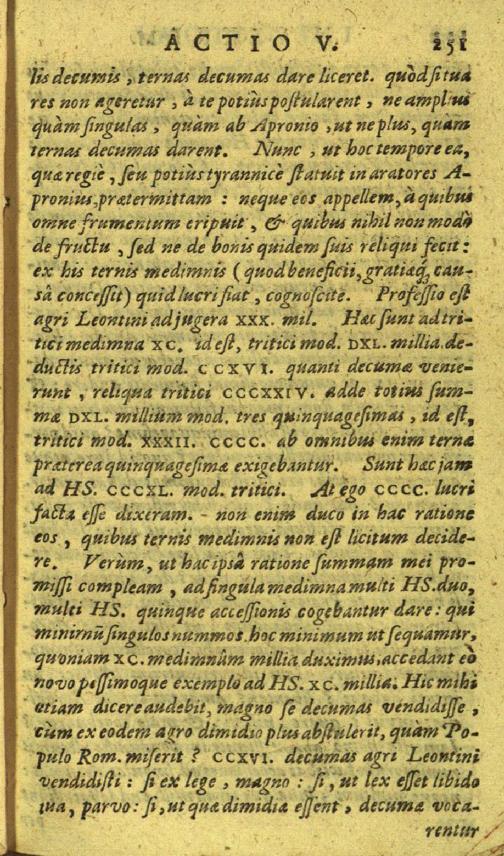 ACTIO V. 251
lis decumis, ternas decumas dare liceret. quòd si tua
res non ageretur, à te potiùs postularent, ne ampliùs
quàm singulas, quàm ab Apronio, ut ne plus, quàm
ternas decumas darent. Nunc, ut hoc tempore ea,
quæ regiè, seu potiùs tyrannicè statuit in aratores A-
pronius, prætermittam: neque eos appellem, à quibus
omne frumentum eripuit, & quibus nihil non modò
de fructu, sed ne de bonis quidem suis reliqui fecit:
ex his ternis medimnis (quod beneficii, gratiæq́, cau-
sâ concessit) quid lucri fiat, cognoscite. Professio est
agri Leontini ad jugera XXX. mil. Hæc sunt ad tri-
tici medimna XC. id est, tritici mod. DXL. millia. de-
ductis tritici mod. CCXVI. quanti decumæ venie-
runt, reliqua tritici CCCXXIV. adde totius sum-
mæ DXL. millium mod. tres quinquagesimas, id est,
tritici mod. XXXII. CCCC. ab omnibus enim ternæ
præterea quinquagesimæ exigebantur. Sunt hæc jam
ad HS. CCCXL. mod. tritici. At ego CCCC. lucri
facta esse dixeram. - non enim duco in hac ratione
eos, quibus ternis medimnis non est licitum decide-
re. Verùm, ut hac ipsâ ratione summam mei pro-
missi compleam, ad singula medimna multi HS. duo,
multi HS. quinque accessionis cogebantur dare: qui
minimũ singulos nummos. hoc minimum ut sequamur,
quoniam XC. medimnûm millia duximus, accedant eò
novo pessimoque exemplo ad HS. XC. millia. Hic mihi
etiam dicere audebit, magno se decumas vendidisse,
cùm ex eodem agro dimidio plus abstulerit, quàm Po-
pulo Rom. miserit? CCXVI. decumas agri Leontini
vendidisti: si ex lege, magno: si, ut lex esset libido
tua, parvo: si, ut quæ dimidiæ essent, decumæ voca-
rentur